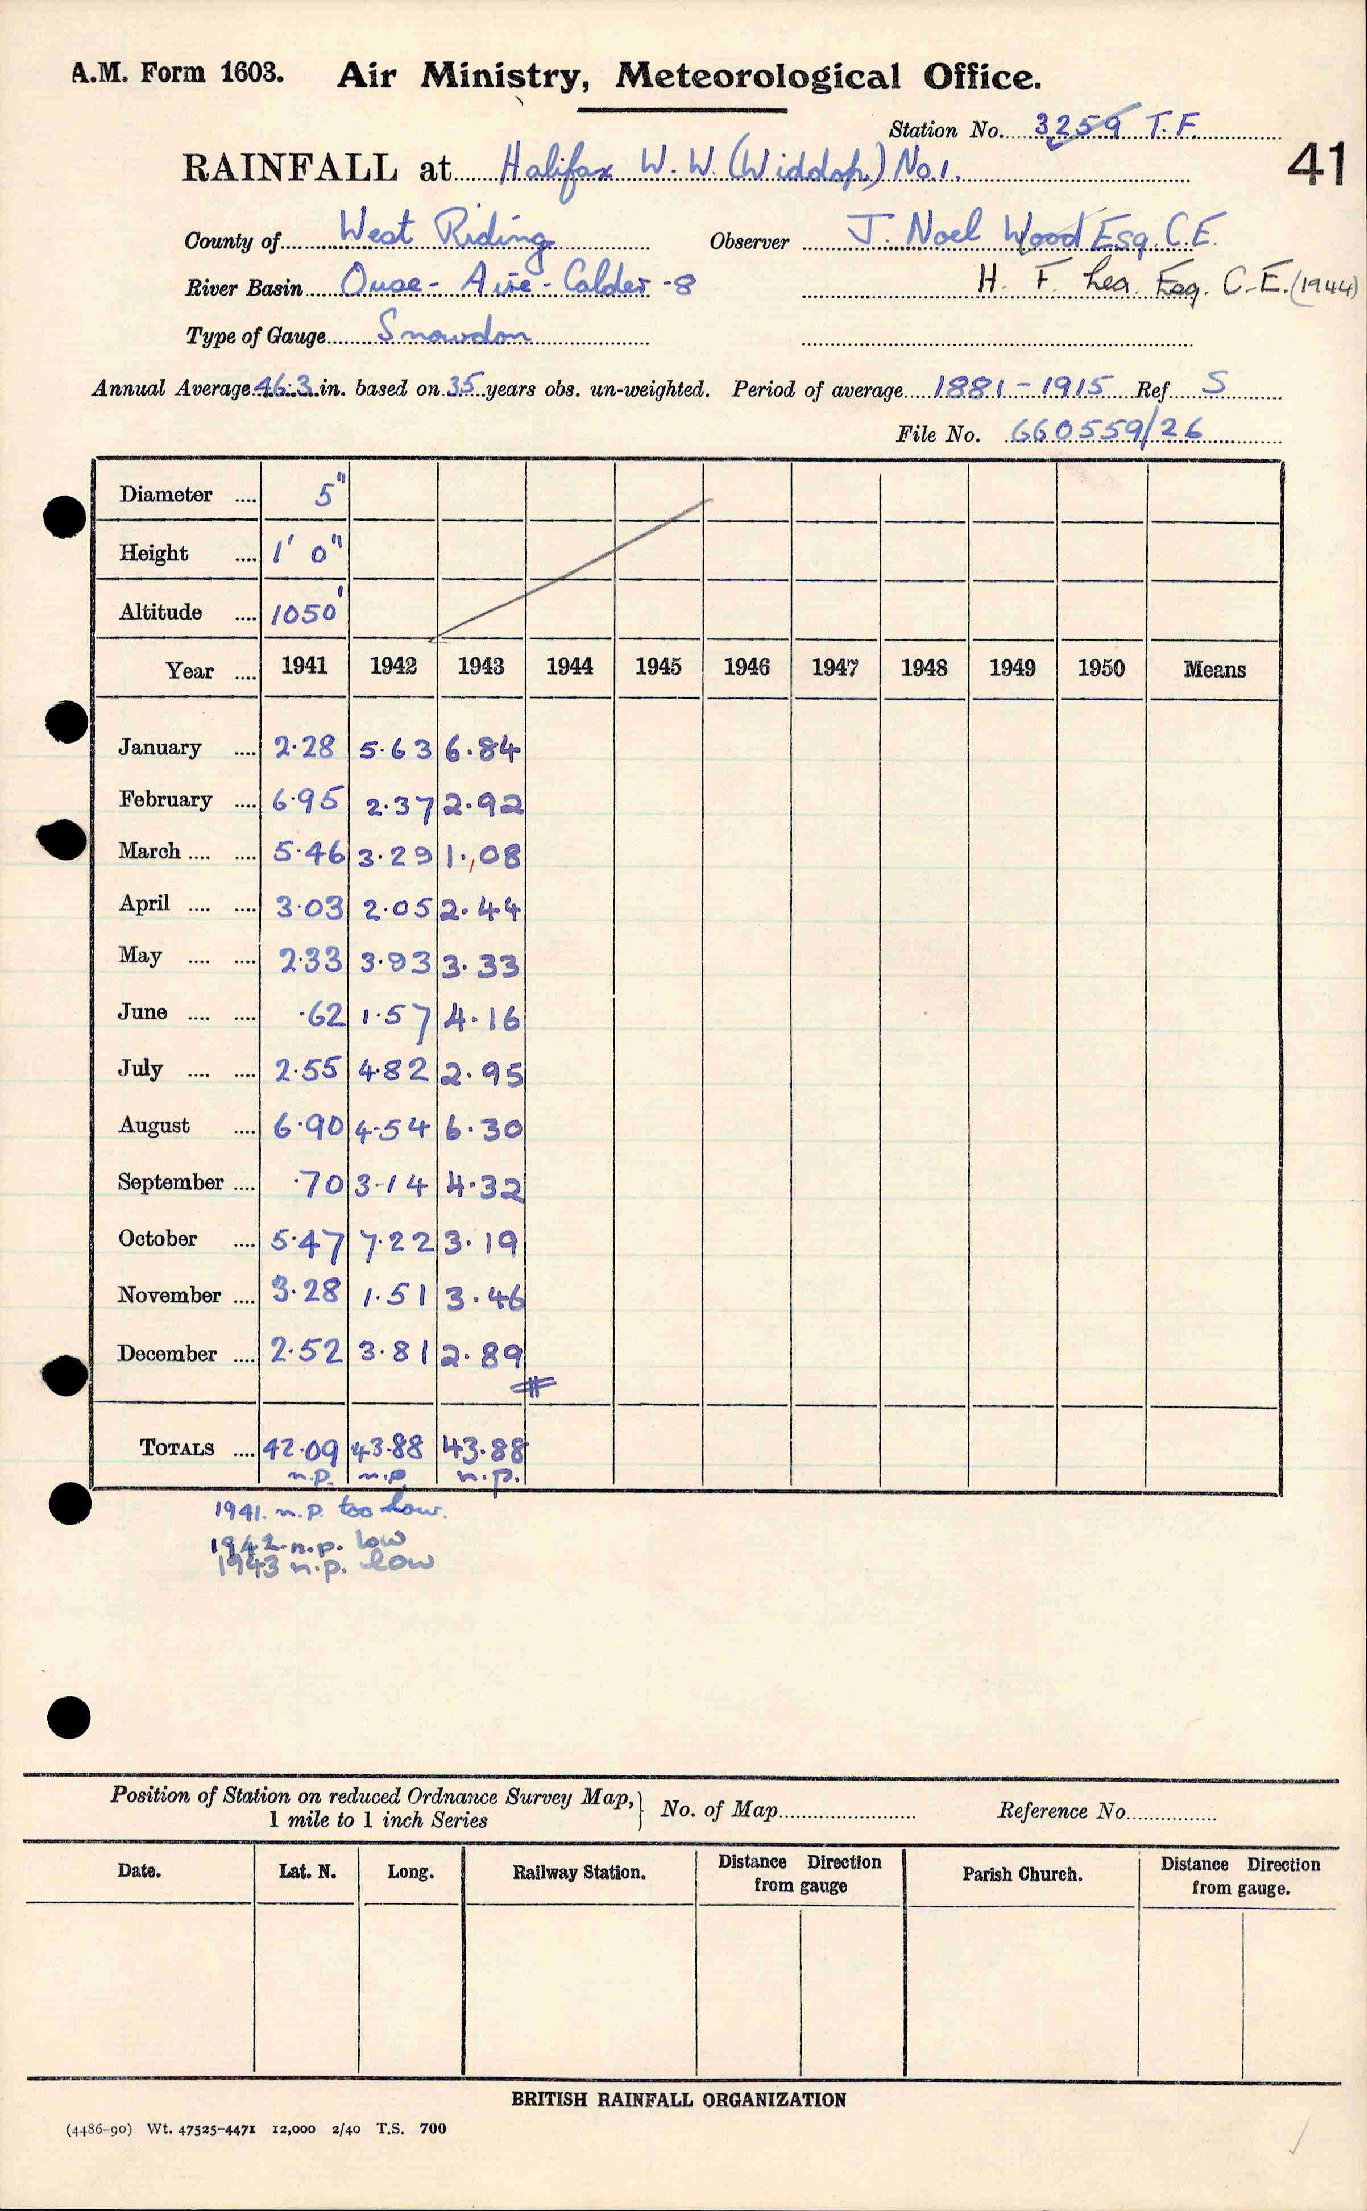 A.M. Form 1603. Air Ministry, Meteorological Office.
Station No. 3259 T.F.
41
RAINFALL at Halifax W.W. (Widdop.) No.1.
County of West Riding Observer J. Noel Wood Esq. C.E.
River Basin Ouse - Aire - Calder - 8 H. F. Lea. Esq. C.E. (1944)
Type of Gauge Snowdon
Annual Average 46.3 in. based on 35 years obs. un-weighted. Period of average 1881 - 1915 Ref S
File No. 660559/26
Diameter .... 5"
Height .... 1' 0"
Altitude .... 1050'
Year .... 1941 1942 1943 1944 1945 1946 1947 1948 1949 1950 Means
January .... 2.28 5.63 6.84
February .... 6.95 2.37 2.92
March .... .... 5.46 3.29 1.08
April .... .... 3.03 2.05 2.44
May .... .... 2.33 3.93 3.33
June .... .... .62 1.57 4.16
July .... .... 2.55 4.82 2.95
August .... 6.90 4.54 6.30
September .... .70 3.14 4.32
October .... 5.47 7.22 3.19
November .... 3.28 1.51 3.46
December .... 2.52 3.81 2.89
#
TOTALS .... 42.09 43.88 43.88
n.p. n.p. n.p.
1941. n.p. too low.
1942 n.p. low
1943 n.p. low
Position of Station on reduced Ordnance Survey Map, } No. of Map Reference No.
1 mile to 1 inch Series
Date. Lat. N. Long. Railway Station. Distance Direction from gauge Parish Church. Distance Direction from gauge.
BRITISH RAINFALL ORGANIZATION
(4486-90) Wt. 47525-4471 12,000 2/40 T.S. 700